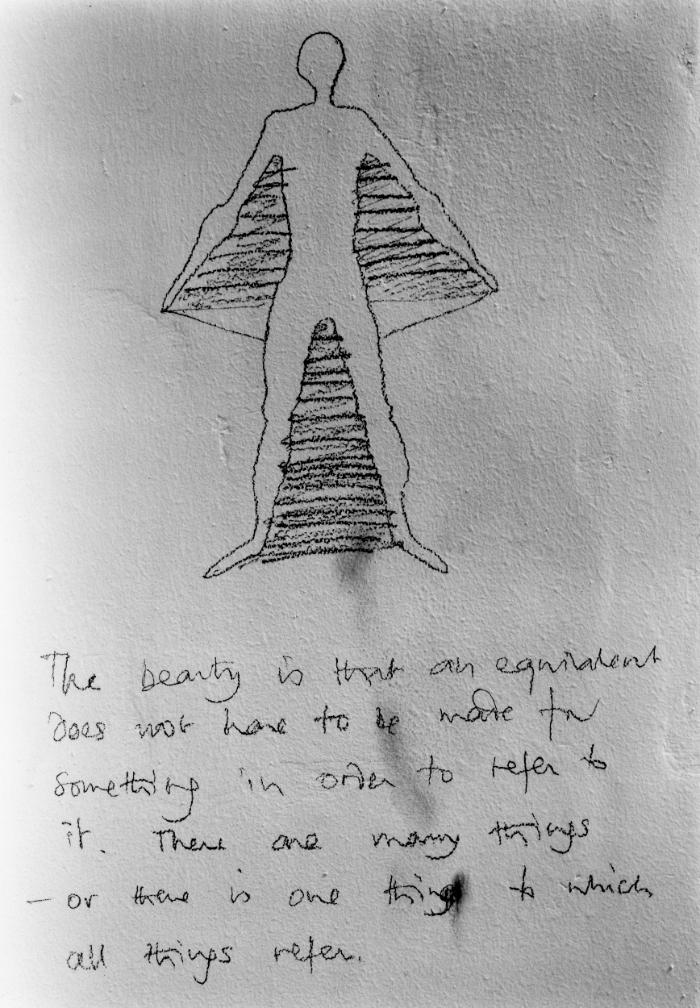 The beauty is that an equivalent
does not have to be made for
something in order to refer to
it. There are many things
– or there is one thing to which
all things refer.